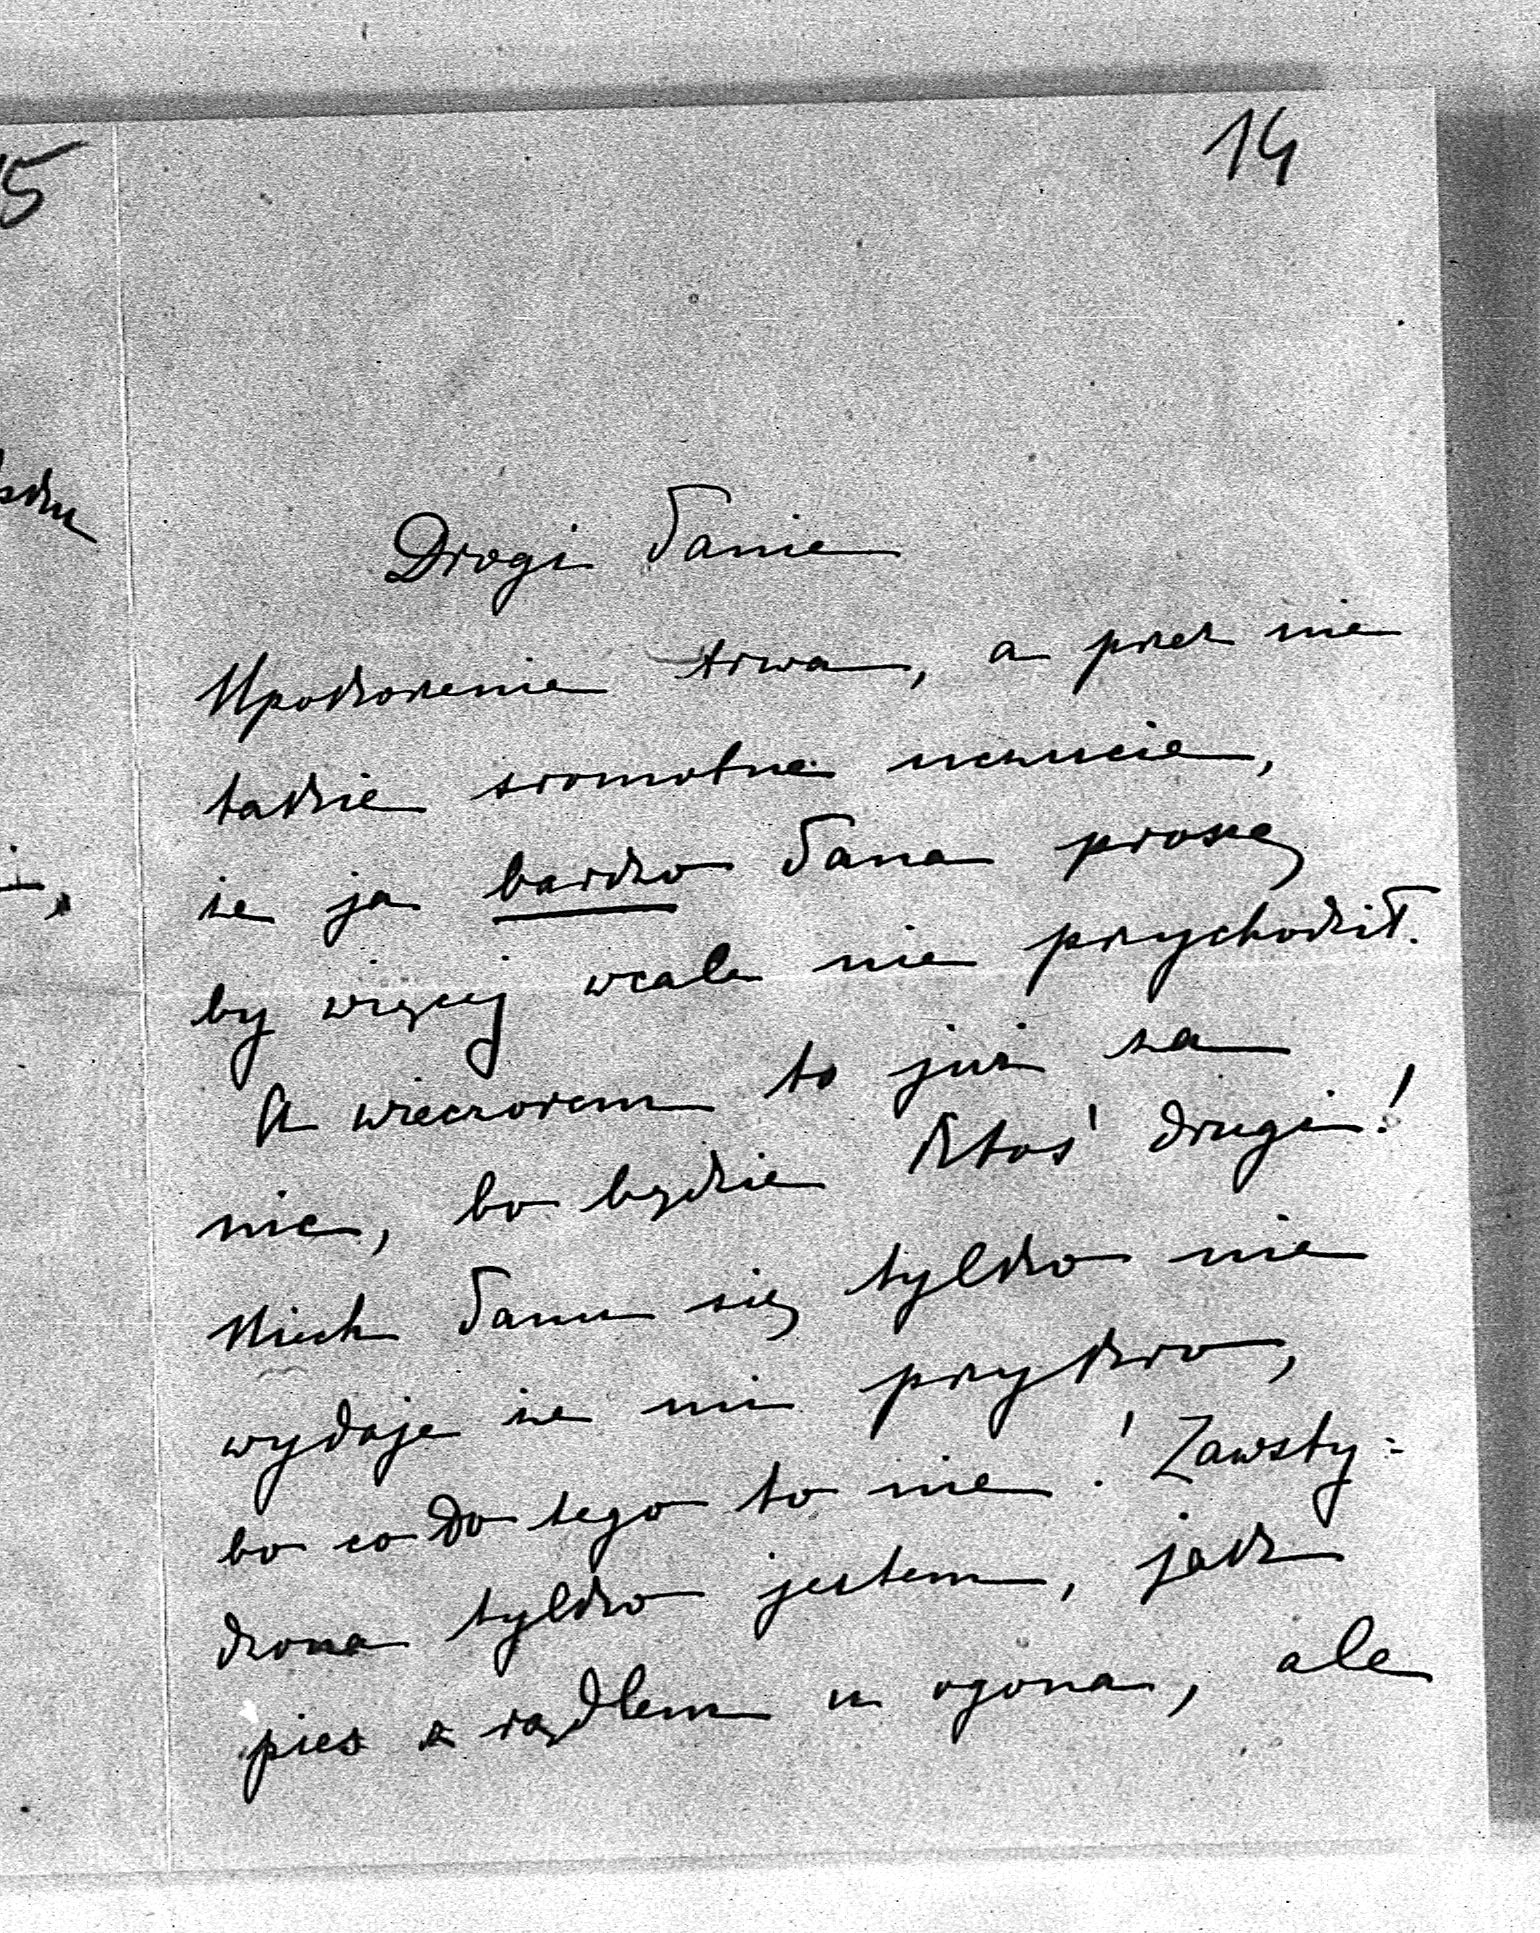 14
Drogi Panie
Upokorzenie trwa, a przez nie
takie sromotne uczucie,
że ja bardzo Pana proszę
by więcej wcale nie przychodził.
A wieczorem to już za
nic, bo będzie Ktoś drugi!
Niech Panu się tylko nie
wydaje że mi przykro,
bo co do tego to nie! Zawsty=
dzona tylko jestem, jak
pies z rądlem u ogona, ale